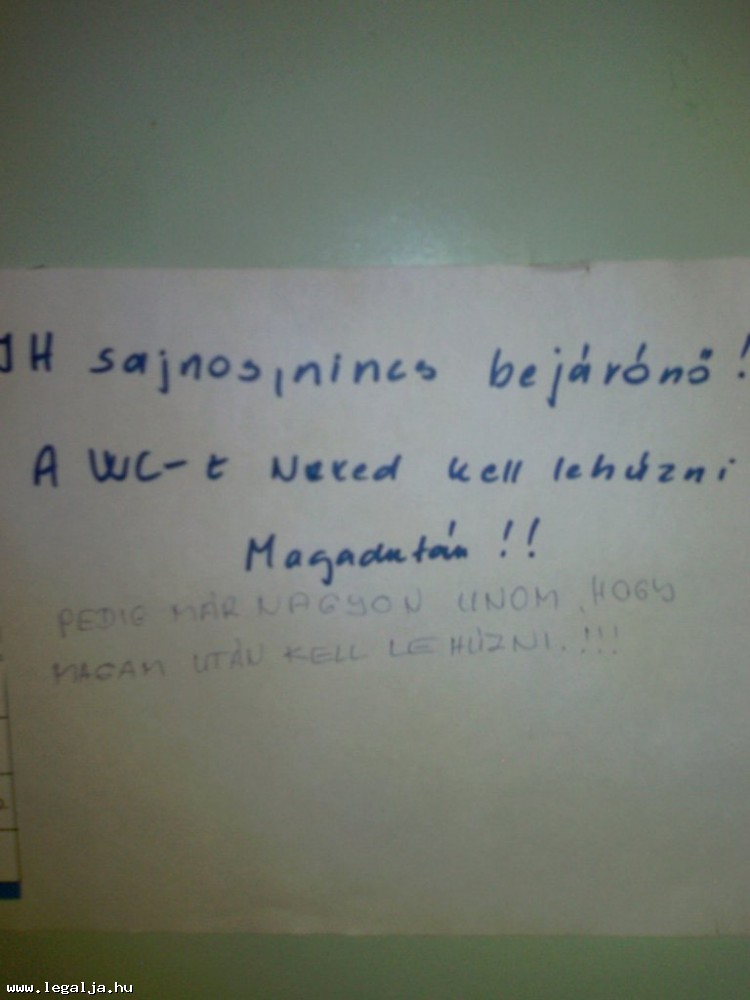 IH sajnos, nincs bejárónő!
A WC-t Neked kell lehúzni
Magadután!!
PEDIG MÁR NAGYON UNOM, HOGY
MAGAM UTÁN KELL LEHÚZNI.!!!
www.legalja.hu